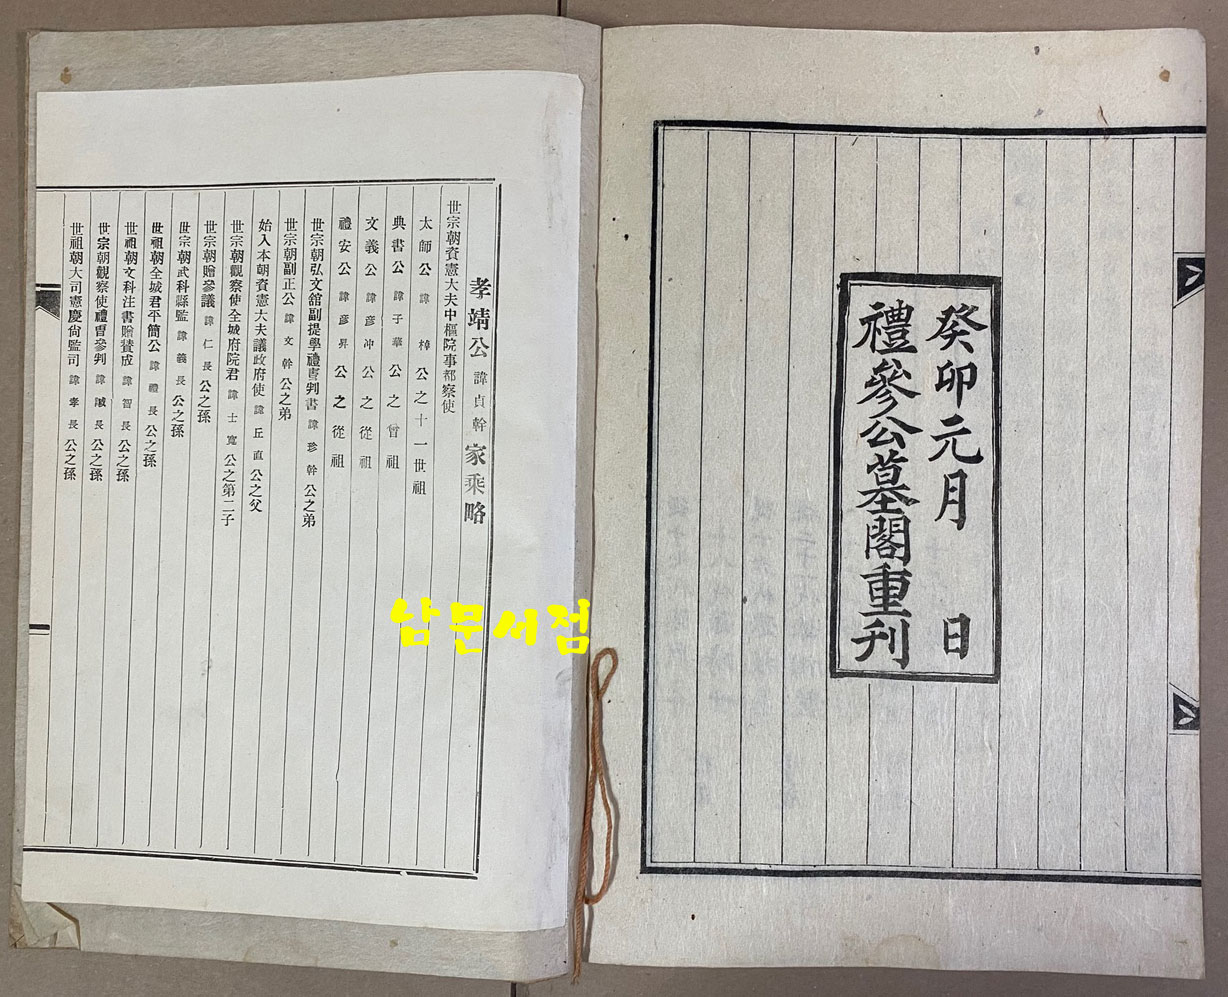 癸卯元月 日
禮參公墓閣重刊
孝靖公 諱貞幹 家乘略
世宗朝資憲大夫中樞院事都察使
太師公 諱棹 公之十一世祖
典書公 諱子華 公之曾祖
文義公 諱彦冲 公之從祖
禮安公 諱彦昇 公之從祖
世宗朝弘文舘副提學禮曺判書 諱珍幹 公之弟
世宗朝副正公 諱文幹 公之弟
始入本朝資憲大夫議政府使 諱丘直 公之父
世宗朝觀察使全城府院君 諱士寬 公之第二子
世宗朝贈參議 諱仁長 公之孫
世宗朝武科縣監 諱義長 公之孫
世祖朝全城君平簡公 諱禮長 公之孫
世祖朝文科注書贈賛成 諱智長 公之孫
世宗朝觀察使禮曺參判 諱諴長 公之孫
世祖朝大司憲慶尙監司 諱孝長 公之孫
남문서점